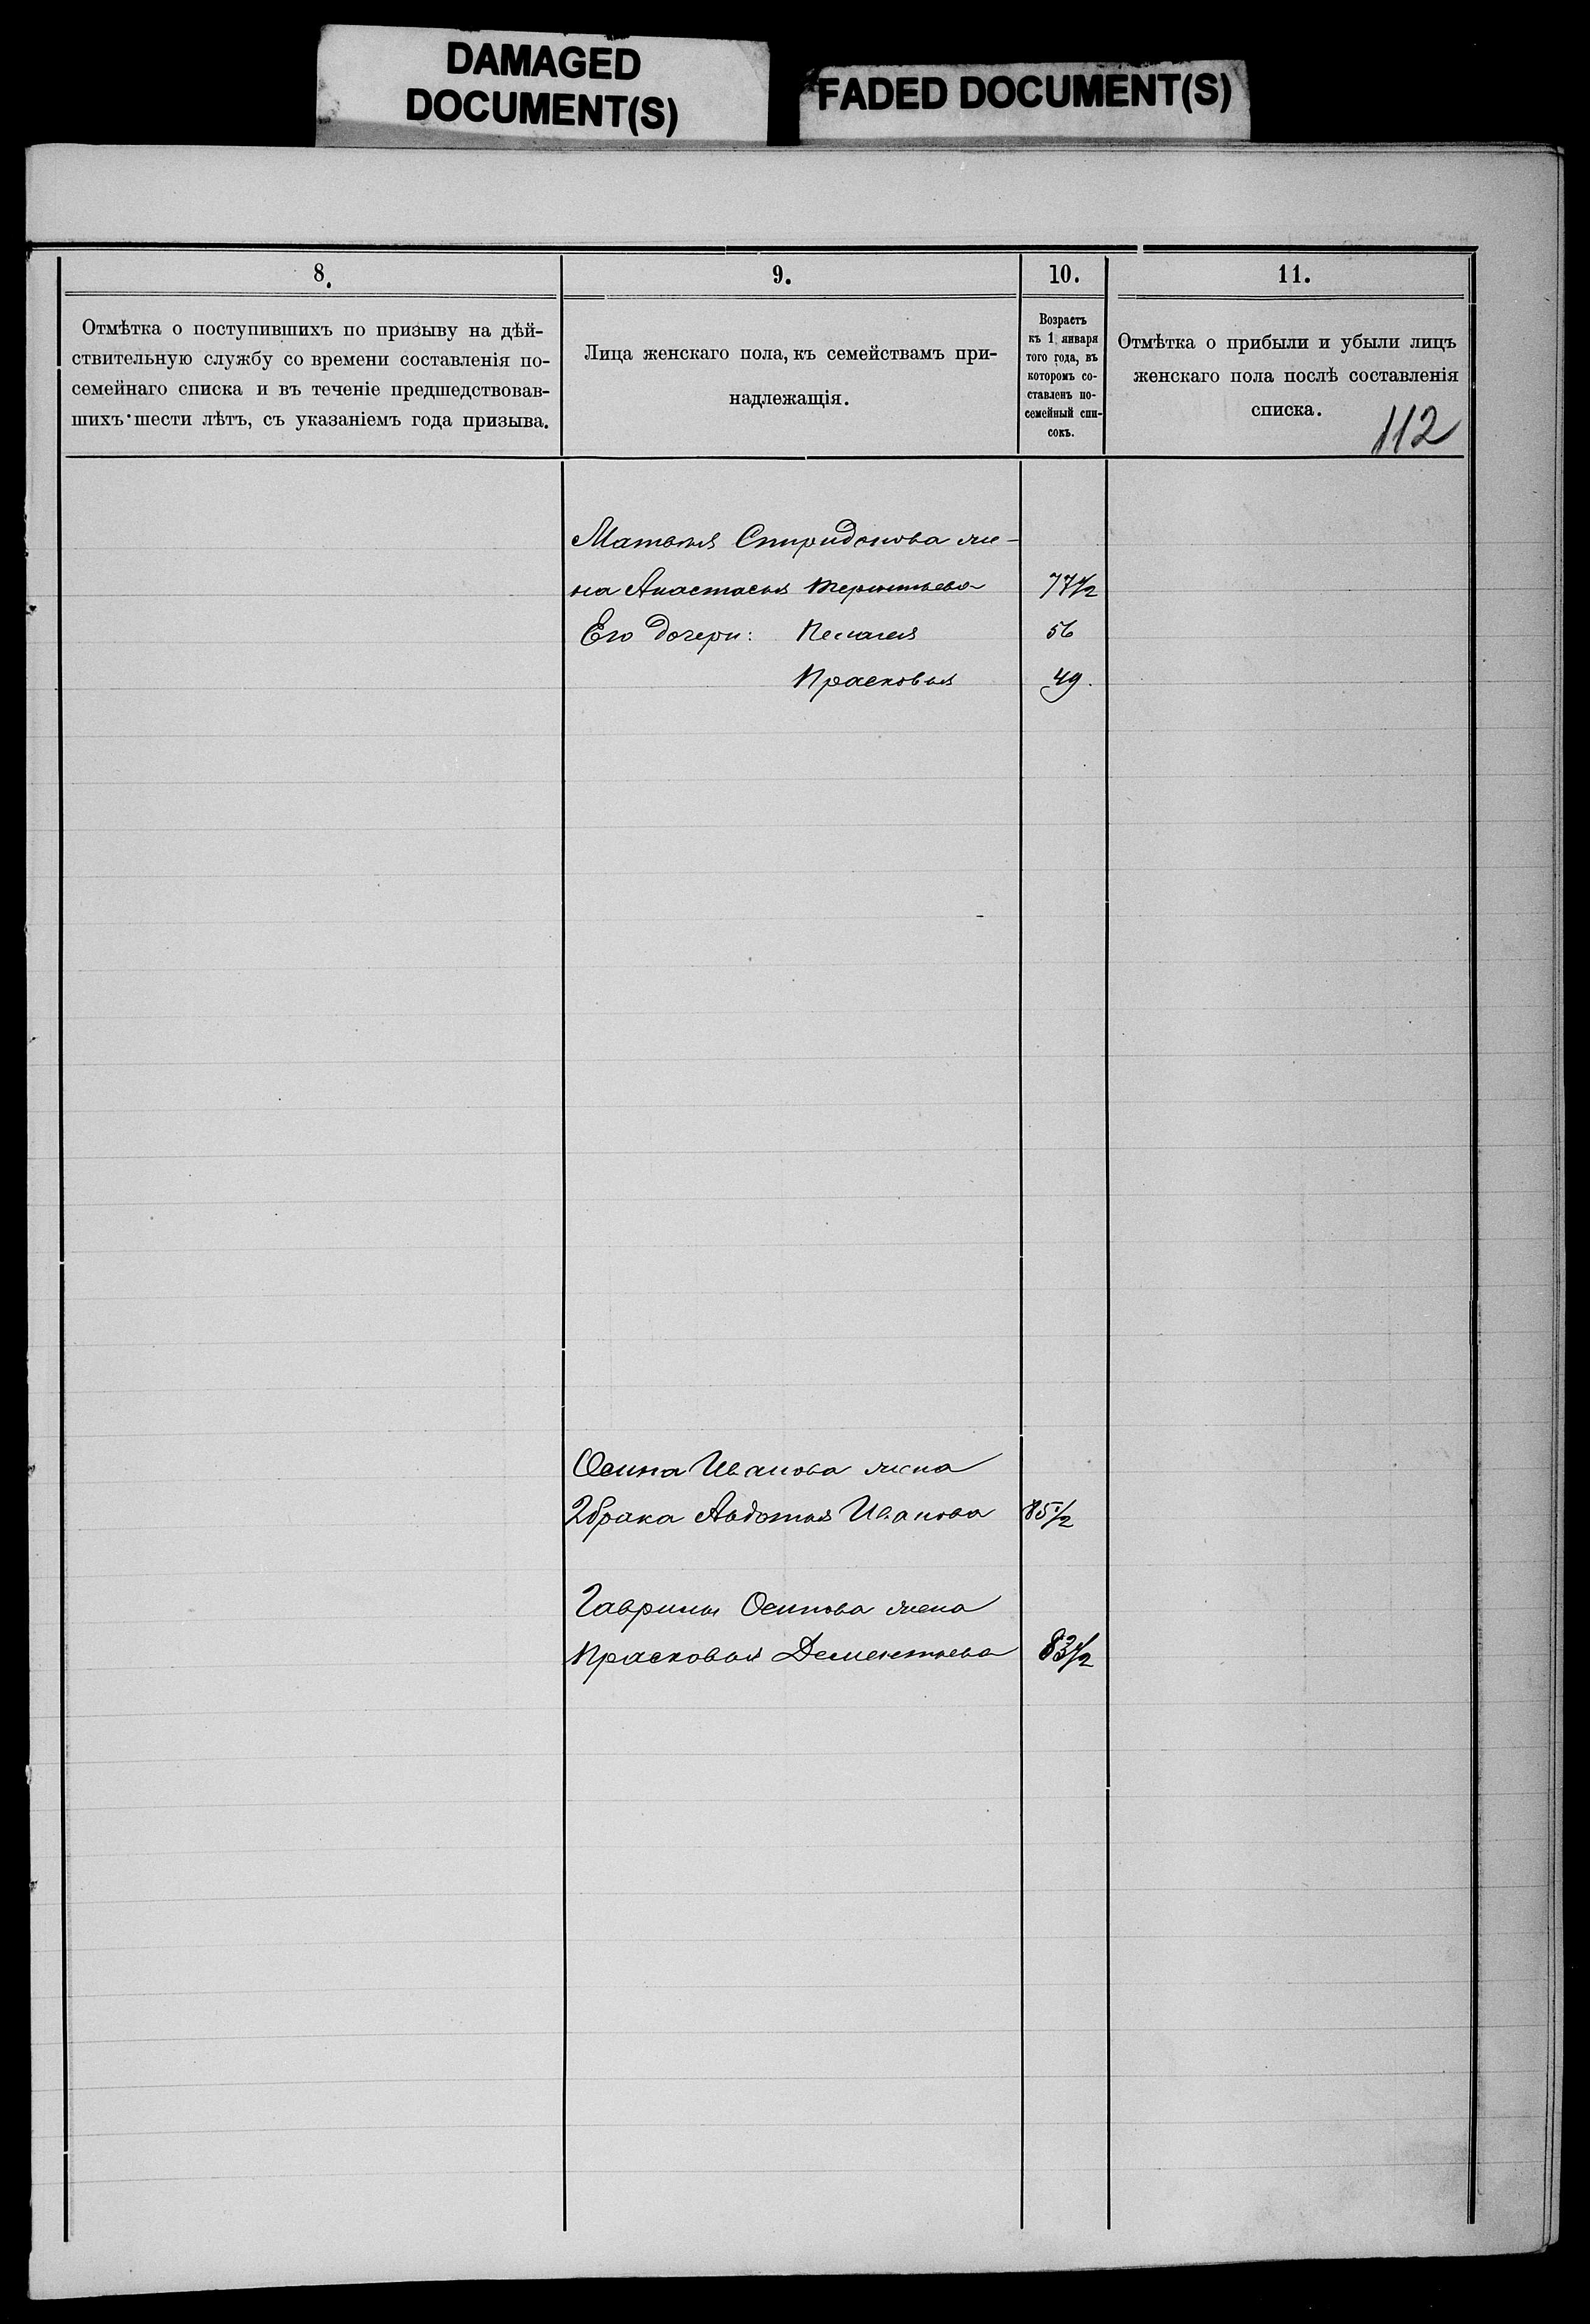 DAMAGED
DOCUMENT(S)
FADED DOCUMENT(S)
8.
9.
10.
11.
Отмѣтка о поступившихъ по призыву на дѣй-
ствительную службу со времени составленія по-
семейнаго списка и въ теченіе предшедствовав-
шихъ шести лѣтъ, съ указаніемъ года призыва.
Лица женскаго пола, къ семействамъ при-
надлежащія.
Возрастъ
къ 1 января
того года, въ
которомъ со-
ставленъ по-
семейный спи-
сокъ.
Отмѣтка о прибыли и убыли лицъ
женскаго пола послѣ составленія
списка.
112
Матвѣя Спиридонова же-
на Анастасья Терентьева 77 1/2
Его дочери: Пелагея 56
Прасковья 49.
Осипа Иванова жена
2 брака Авдотья Иванова 85 1/2
Гаврилы Осипова жена
Прасковья Дементьева 83 1/2